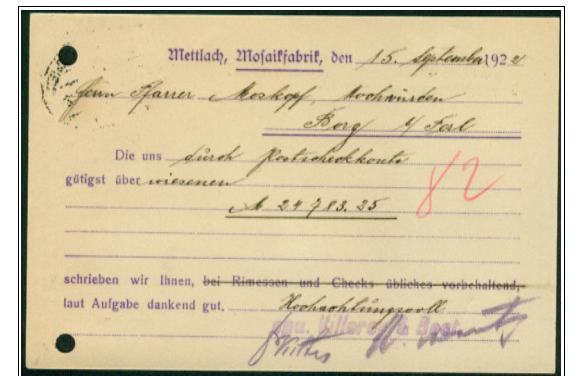 Mettlach, Mosaikfabrik, den 15. September 1922
Herrn Pfarrer Moskopf, Hochwürden
Borg
Die uns durch Postscheckkonto
gütigst überwiesenen
M 24783.25
82
schrieben wir Ihnen, bei Rimessen und Checks übliches vorbehaltend,
laut Aufgabe dankend gut.
Hochachtungsvoll
ppa. Villeroy & Boch